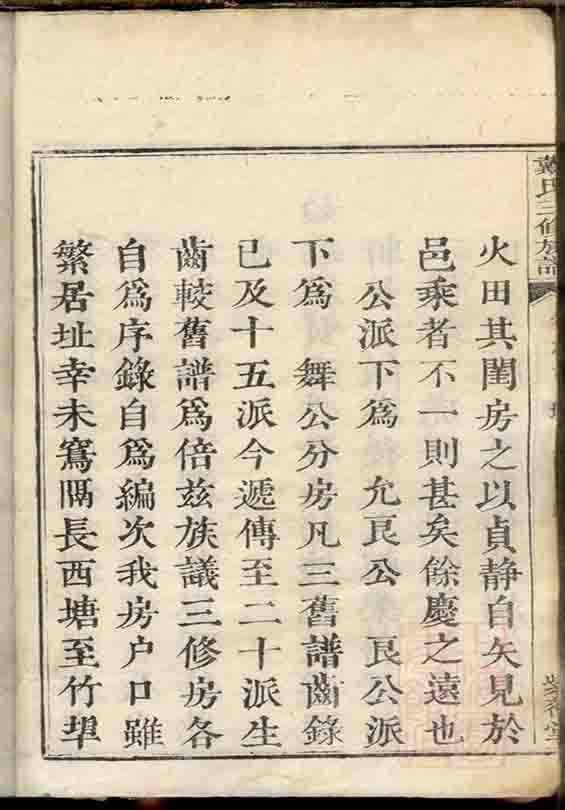 戴氏三修族譜
火田其閨房之以貞靜自矢見於
邑乘者不一則甚矣餘慶之遠也
公派下為　允艮公　艮公派
下為　舞公分房凡三舊譜齒錄
已及十五派今遞傳至二十派生
齒較舊譜為倍茲族議三修房各
自為序錄自為編次我房户口雖
繁居址幸未窵隔長西塘至竹埠